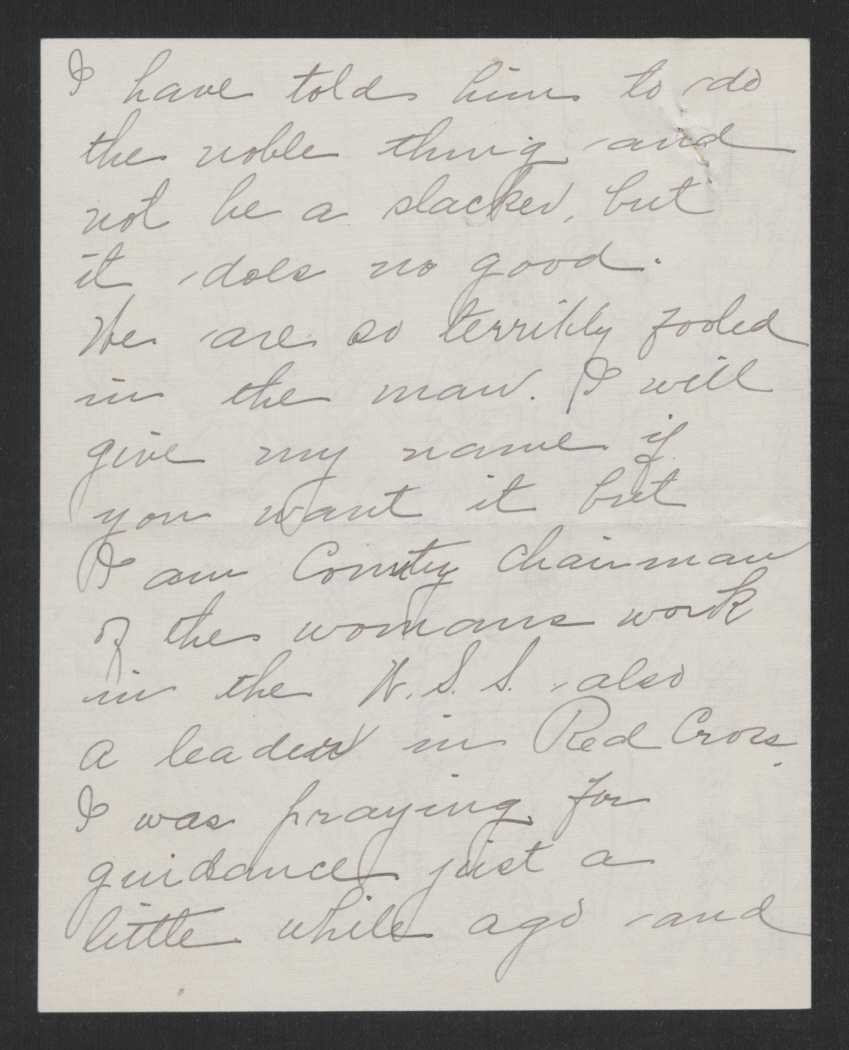 I have told him to do
the noble thing and
not be a slacker, but
it does no good.
We are so terribly fooled
in the man. I will
give my name if
you want it but
I am County Chairman
of the womans work
in the W. S. S. also
a leader in Red Cross.
I was praying for
guidance just a
little while ago and